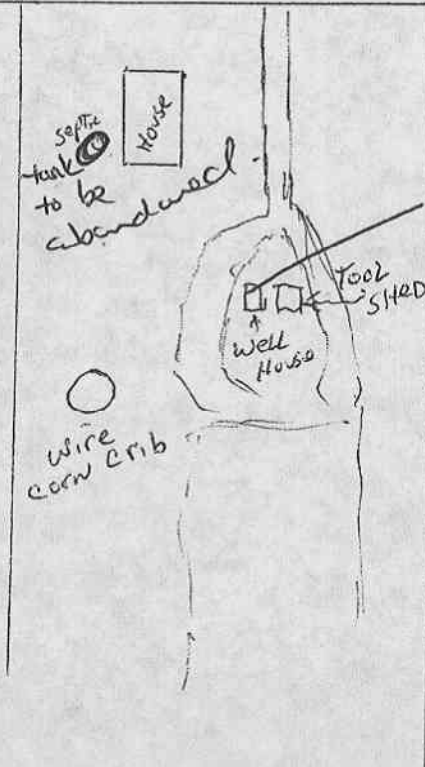 House
septic
tank
to be
abandoned
TOOL
SHED
well
House
wire
corn crib